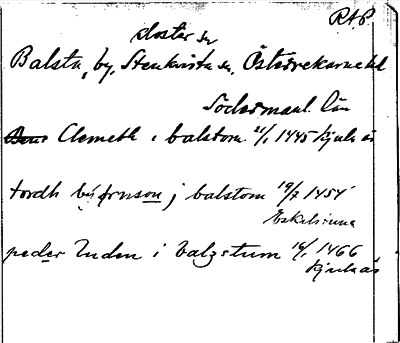 RAP.
kloster sn
Balsta, by, Stenkvista sn, Österrekarne hd
Södermanl. län
Clemeth i balstom 21/1 1445 Kjula ås
tordh björnson j balstom 19/7 1454
Eskilstuna
peder Unden i balzstum 16/1 1466
Kjula ås